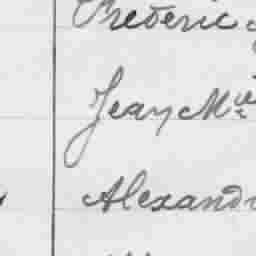 Frédéric
Jean Mie
Alexand